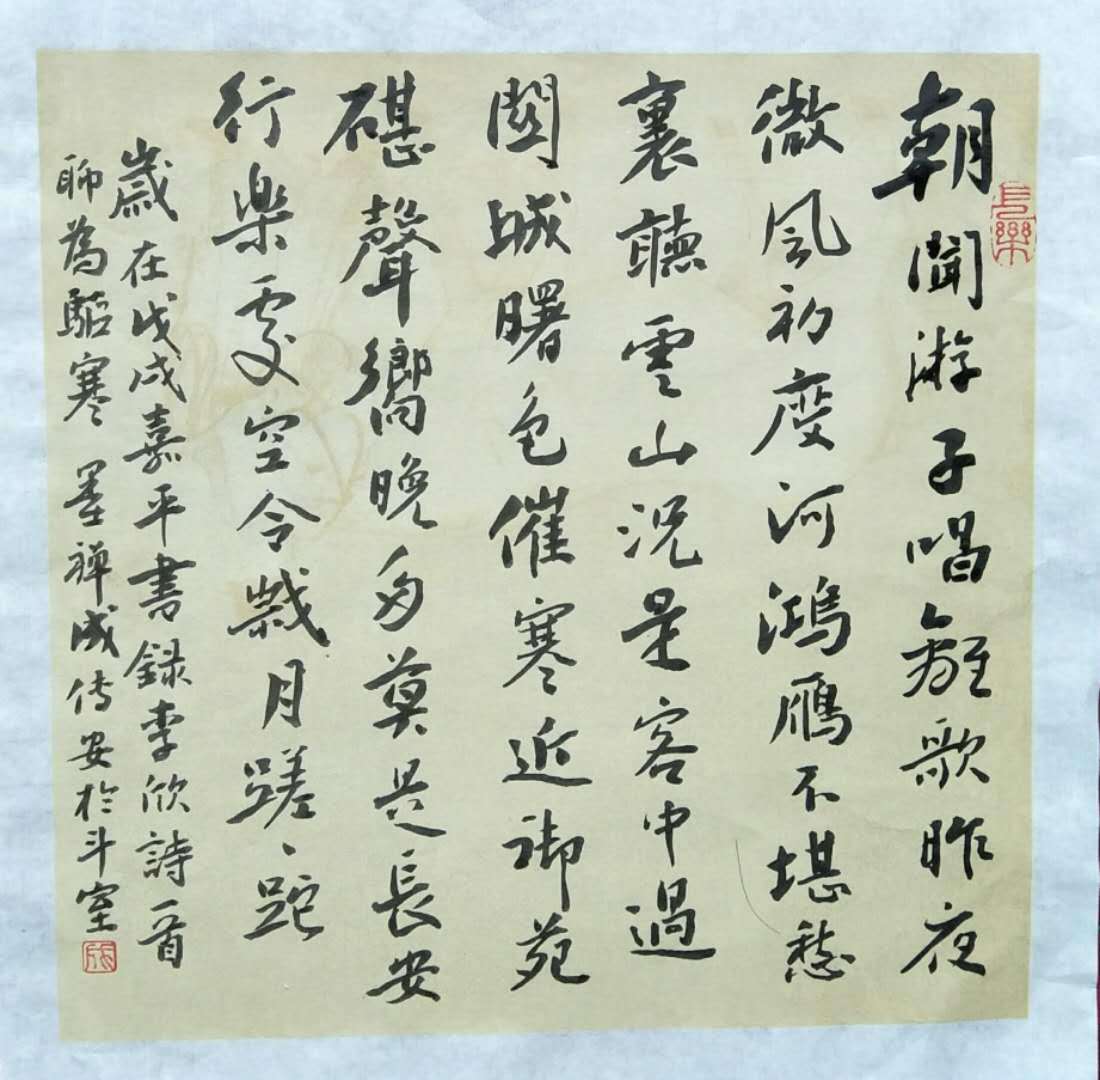 朝聞游子唱離歌昨夜
微風初度河鴻雁不堪愁
裏聽雲山況是客中過
關城曙色催寒近御苑
碪聲嚮晚多莫是長安
行樂處空令歲月蹉、跎
歲在戊戌嘉平書録李欣詩一首
聊為驅寒 墨禅成传安於斗室
長樂
成